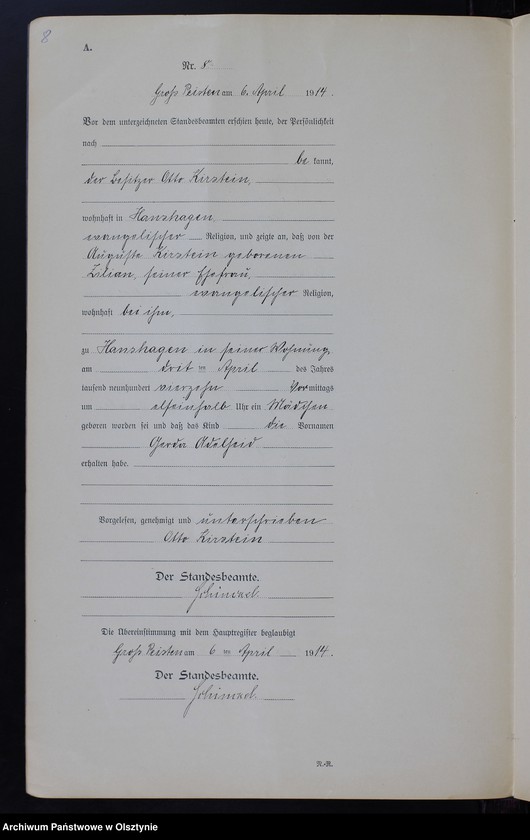 8
A.
Nr. 8
Groß Peisten am 6. April 1914.
Vor dem unterzeichneten Standesbeamten erschien heute, der Persönlichkeit
nach
be kannt,
der Besitzer Otto Kirstein,
wohnhaft in Hanshagen,
evangelischer Religion, und zeigte an, daß von der
Auguste Kirstein geborenen
Zilian, seiner Ehefrau,
evangelischer Religion,
wohnhaft bei ihm,
zu Hanshagen in seiner Wohnung,
am drei ten April des Jahres
tausend neunhundert vierzehn Vor mittags
um elfeinhalb Uhr ein Mädchen
geboren worden sei und daß das Kind die Vornamen
Gerda Adelheid
erhalten habe.
Vorgelesen, genehmigt und unterschrieben
Otto Kirstein
Der Standesbeamte.
Die Übereinstimmung mit dem Hauptregister beglaubigt
Groß Peisten am 6 ten April 1914.
Der Standesbeamte.
N.-R.
Archiwum Państwowe w Olsztynie